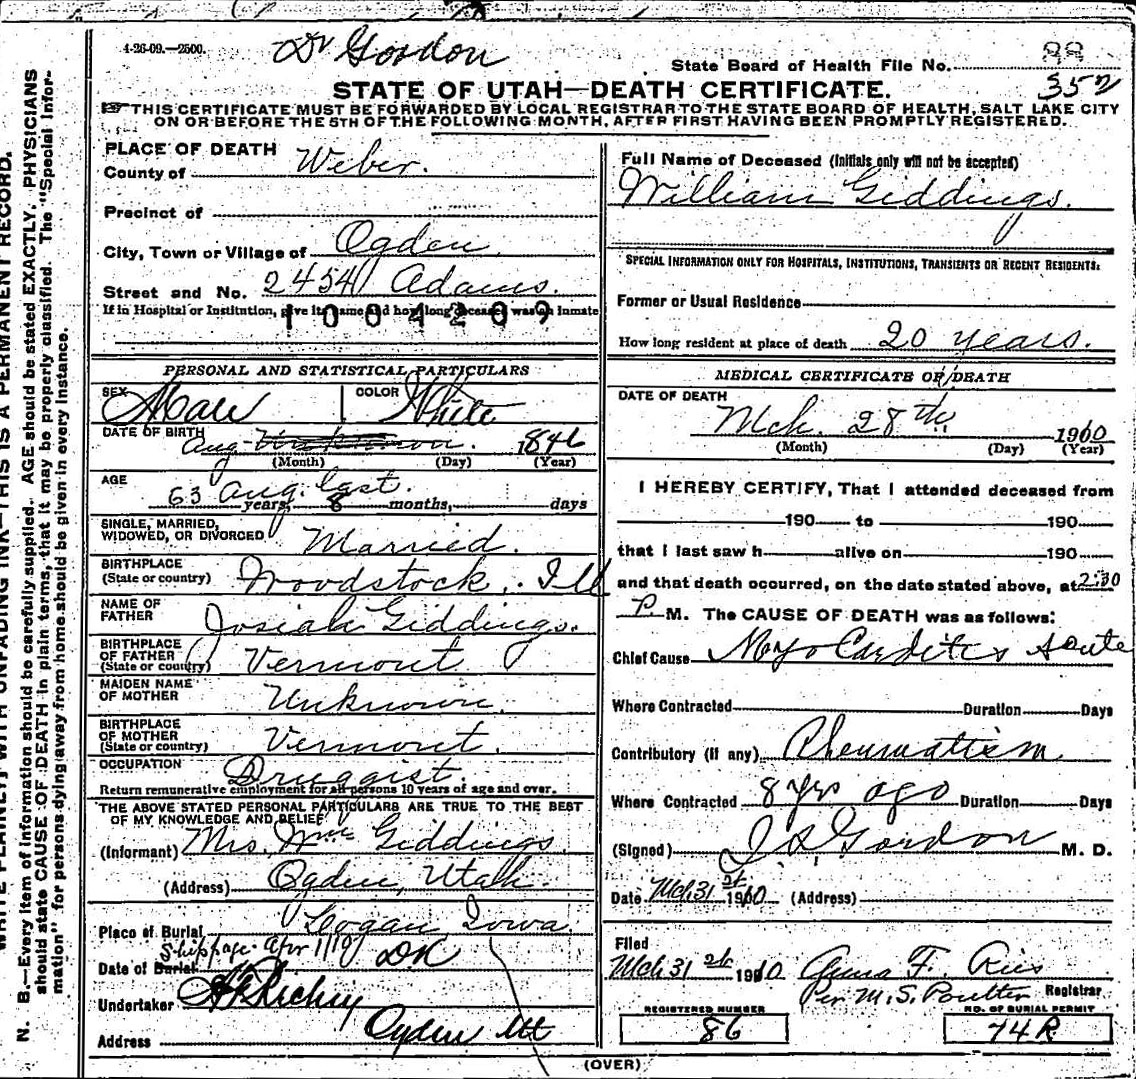 4-26-09.—2500.
Dr Gordon
88
State Board of Health File No.
352
STATE OF UTAH—DEATH CERTIFICATE.
THIS CERTIFICATE MUST BE FORWARDED BY LOCAL REGISTRAR TO THE STATE BOARD OF HEALTH, SALT LAKE CITY
ON OR BEFORE THE 5TH OF THE FOLLOWING MONTH, AFTER FIRST HAVING BEEN PROMPTLY REGISTERED.
PLACE OF DEATH
County of Weber.
Precinct of
City, Town or Village of Ogden
Street and No. 2454 Adams.
If in Hospital or Institution, give its name and how long deceased was an inmate
1004209
PERSONAL AND STATISTICAL PARTICULARS
SEX Male COLOR White
DATE OF BIRTH Aug Unknown. 1846
(Month) (Day) (Year)
AGE 63 Aug. last.
years, 8 months, days
SINGLE, MARRIED,
WIDOWED, OR DIVORCED Married.
BIRTHPLACE
(State or country) Woodstock. Ill
NAME OF
FATHER Josiah Giddings.
BIRTHPLACE
OF FATHER
(State or country) Vermont
MAIDEN NAME
OF MOTHER Unknown.
BIRTHPLACE
OF MOTHER
(State or country) Vermont.
OCCUPATION Druggist.
Return remunerative employment for all persons 10 years of age and over.
THE ABOVE STATED PERSONAL PARTICULARS ARE TRUE TO THE BEST
OF MY KNOWLEDGE AND BELIEF
(Informant) Mrs. Wm Giddings
(Address) Ogden, Utah.
Place of Burial Logan Iowa
Shippage Apr 1/10 DK
Date of Burial
Undertaker Richey
Address Ogden Ut
Full Name of Deceased (Initials only will not be accepted)
William Giddings.
SPECIAL INFORMATION ONLY FOR HOSPITALS, INSTITUTIONS, TRANSIENTS OR RECENT RESIDENTS:
Former or Usual Residence
How long resident at place of death 20 years.
MEDICAL CERTIFICATE OF DEATH
DATE OF DEATH
Mch. 28th, 1910
(Month) (Day) (Year)
I HEREBY CERTIFY, That I attended deceased from
190 to 190
that I last saw h alive on 190
and that death occurred, on the date stated above, at 2:30
P. M. The CAUSE OF DEATH was as follows:
Chief Cause Myo Carditis acute
Where Contracted Duration Days
Contributory (if any) Rheumatism
Where Contracted 8 Yrs ago Duration Days
(Signed) Gordon M. D.
Date Mch 31 st 1910 (Address)
Filed
Mch 31 st 1910 Anna F. Ries
Per M. S. Poulter Registrar
REGISTERED NUMBER
86
NO. OF BURIAL PERMIT
74R
(OVER)
WRITE PLAINLY, WITH UNFADING INK—THIS IS A PERMANENT RECORD.
N. B.—Every item of information should be carefully supplied. AGE should be stated EXACTLY. PHYSICIANS
should state CAUSE OF DEATH in plain terms, that it may be properly classified. The "Special Infor-
mation" for persons dying away from home should be given in every instance.